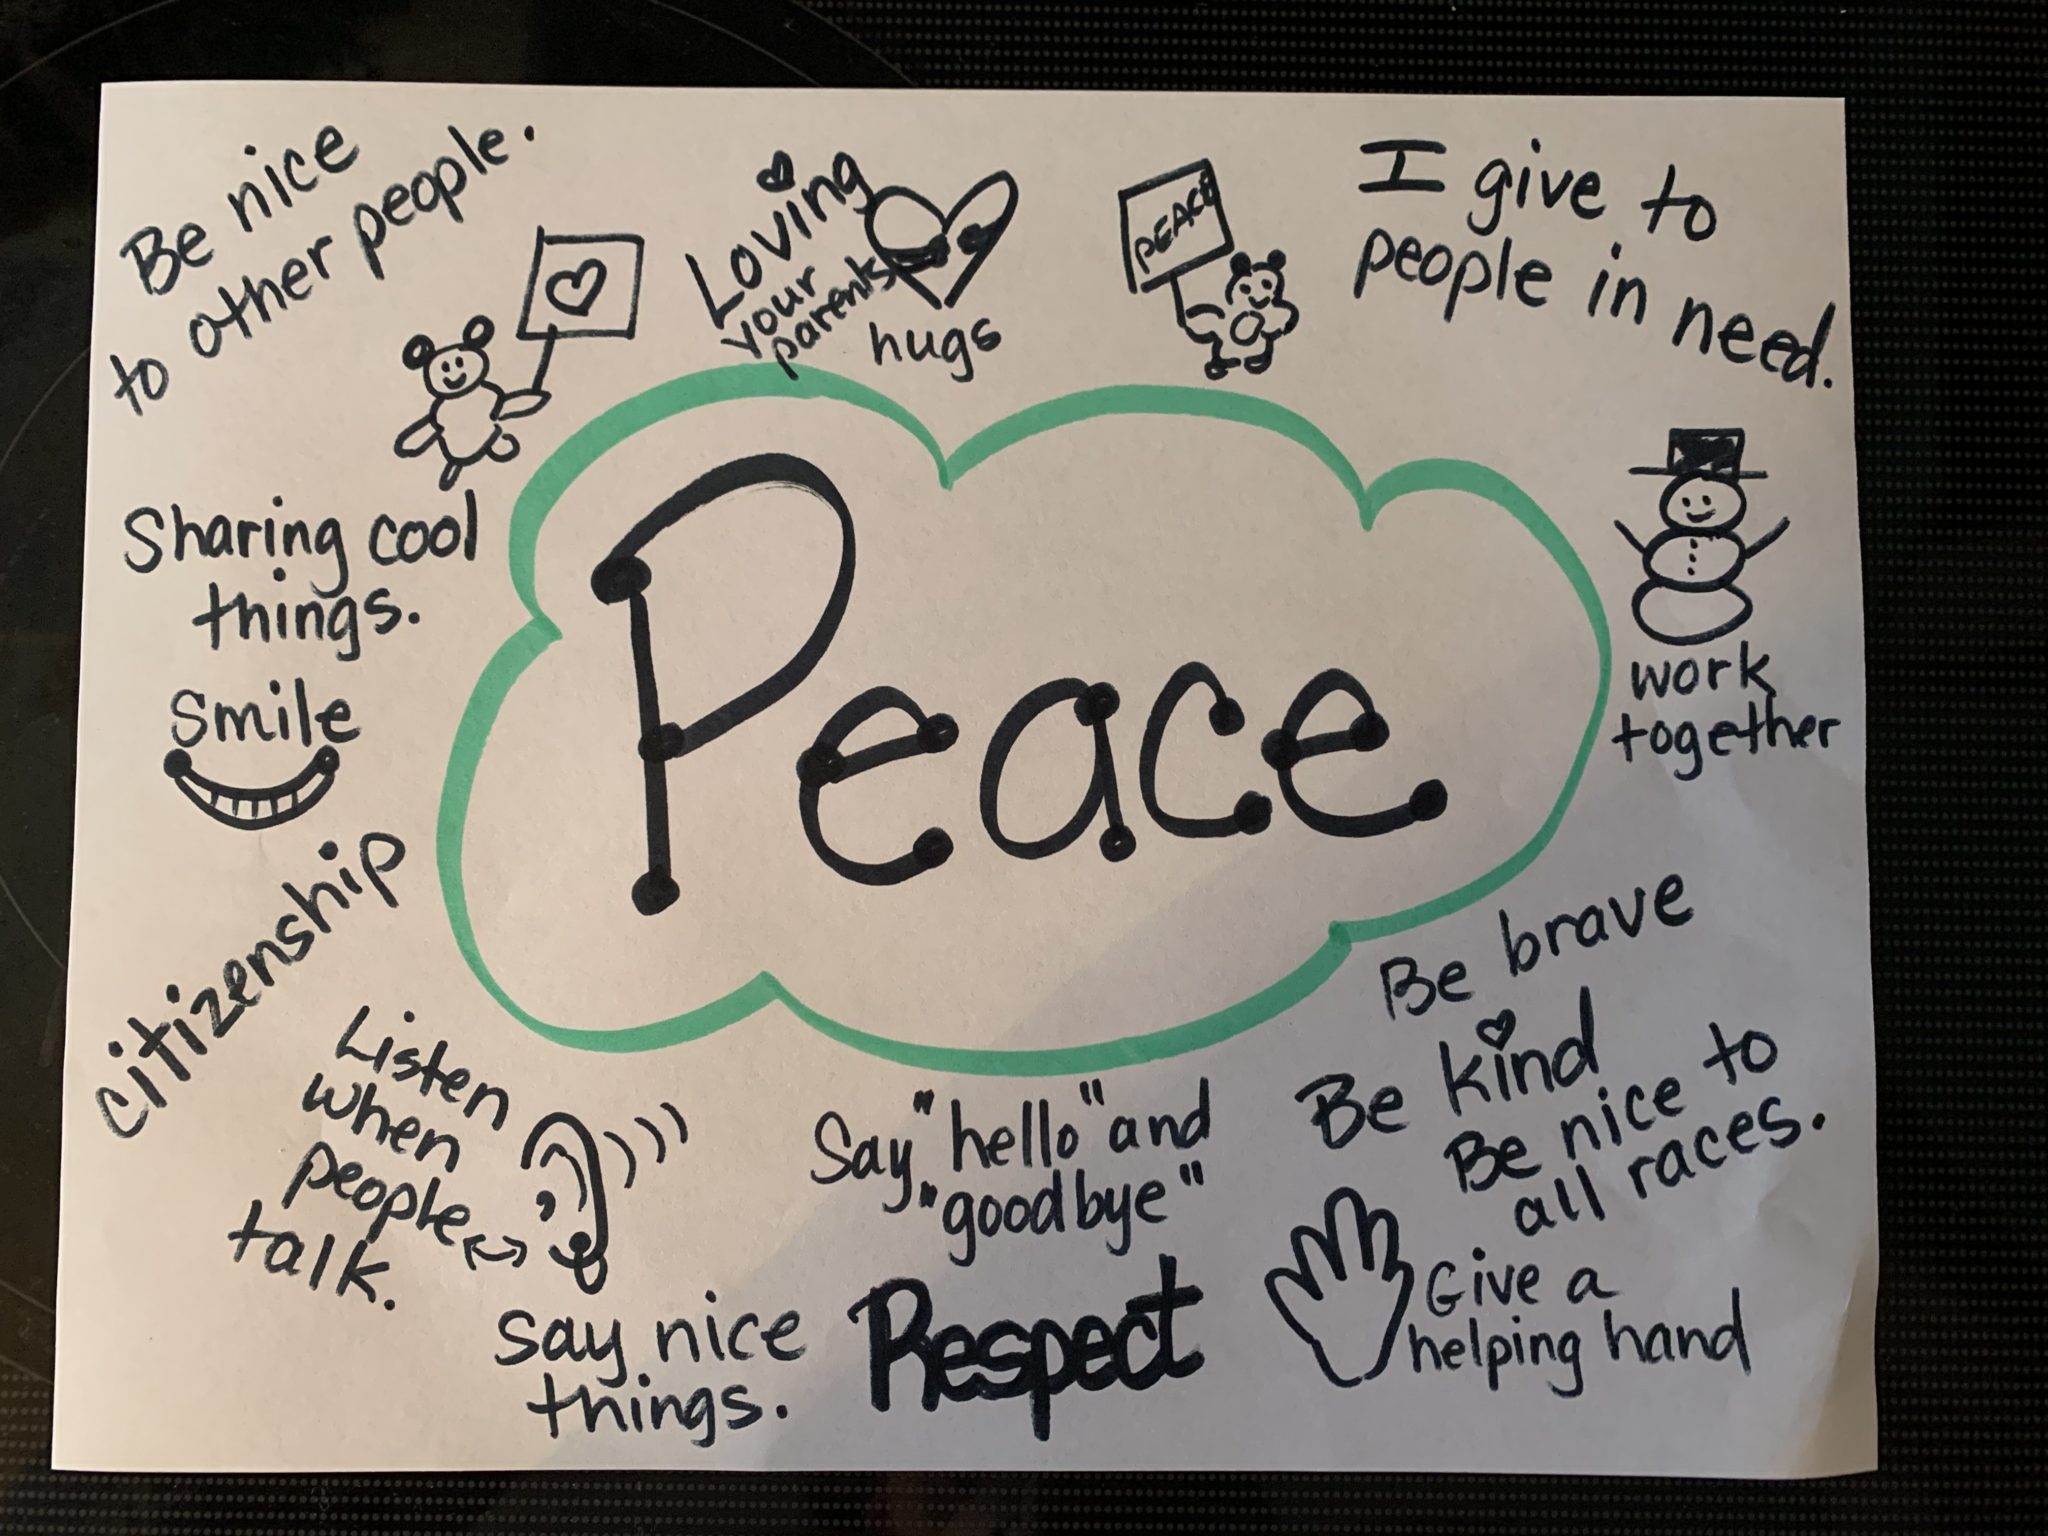 Be nice
to other people.
Loving
your
parents
hugs
PEACE
I give to
people in need.
Sharing cool
things.
Smile
Peace
work
together
citizenship
Listen
when
people
talk.
Say "hello" and
"goodbye"
Be brave
Be kind
Be nice to
all races.
Give a
helping hand
say nice
things.
Respect